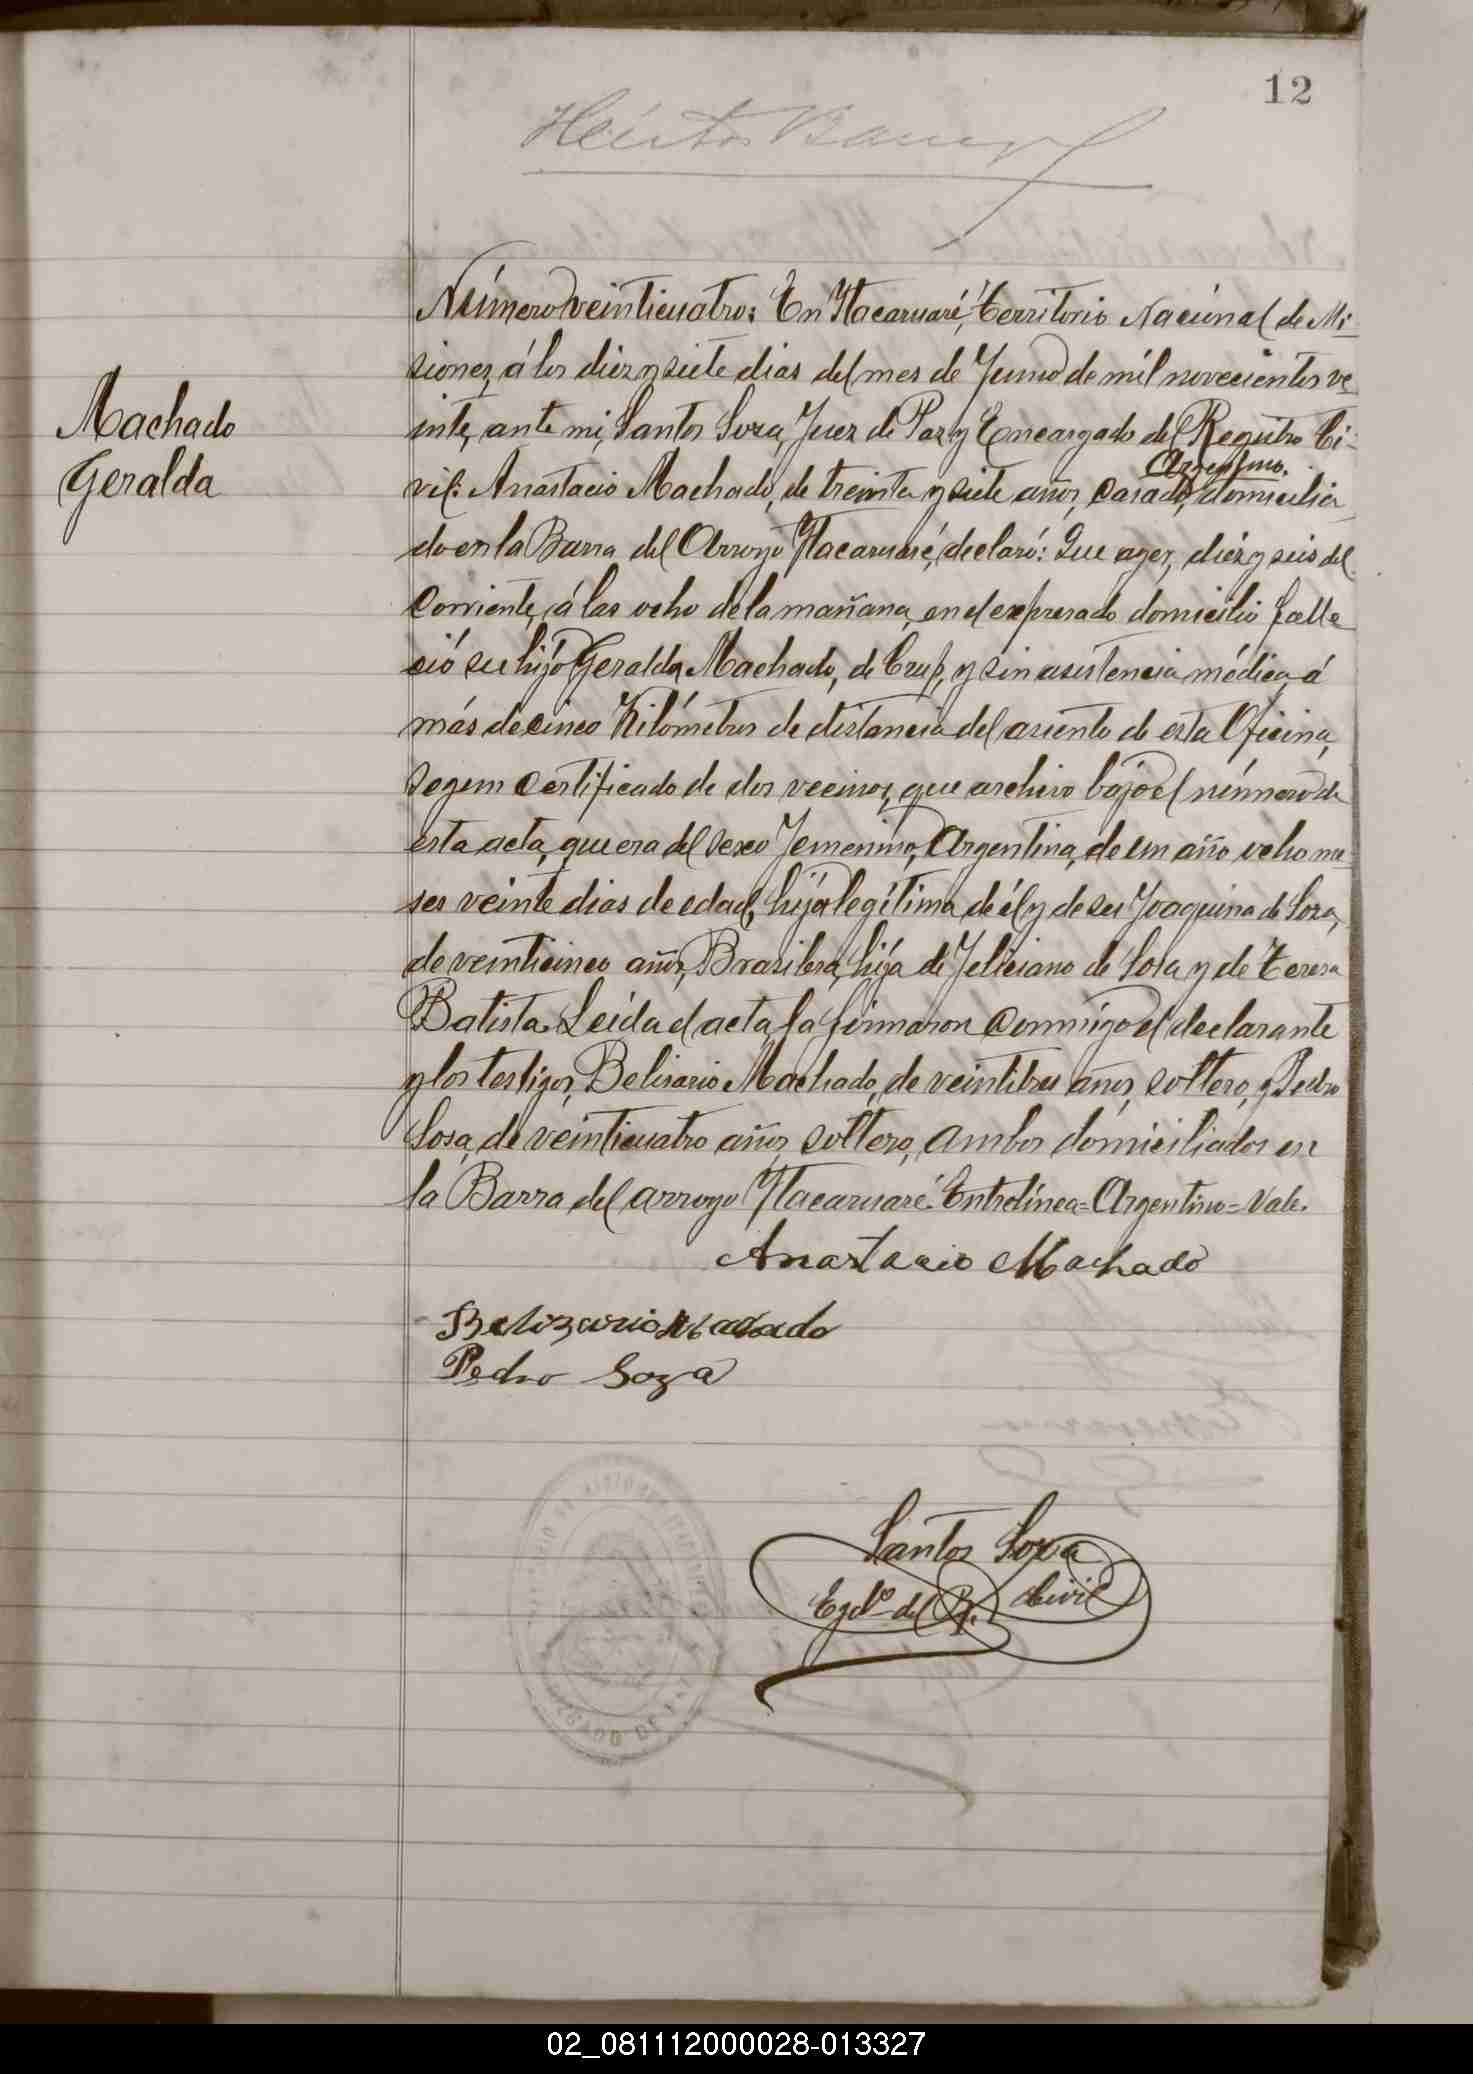 12
Machado
Geralda
Número veinticuatro: En Ytacaruaré, Territorio Nacional de Mi-
siones, á los diez y siete dias del mes de Junio de mil novecientos ve
inte, ante mi, Santos Soza, Juez de Paz y Encargado del Registro Ci-
Argentino.
vil: Anastacio Machado, de treinta y siete años, casado, domicilia
do en la Barra del Arroyo Ytacaruaré, declaró: Que ayer, diez y seis del
corriente, á las ocho de la mañana, en el expresado domicilio falle
ció su hijo Geralda Machado, de Crup, y sin asistencia médica, á
más de cinco Kilómetros de distancia del asiento de esta Oficina,
segun certificado de dos vecinos, que archivo bajo el número de
esta acta, que era del sexo Femenino, Argentina, de un año ocho me
ses veinte dias de edad, hija legítima de él y de su Joaquina de Soza,
de veinticinco años, Brasilera, hija de Feliciano de Sosa y de Teresa
Batista. Leída el acta, la firmaron conmigo el declarante
y los testigos, Belisario Machado, de veintitres años, soltero, y Pedro
Sosa, de veinticuatro años, soltero, ambos domiciliados en
la Barra del arroyo Ytacaruaré. Entrelínea=Argentino=Vale.
Anastacio Machado
Belizario Machado
Pedro Soza
Santos Soza
Egdo. del R. Civil
02_081112000028-013327